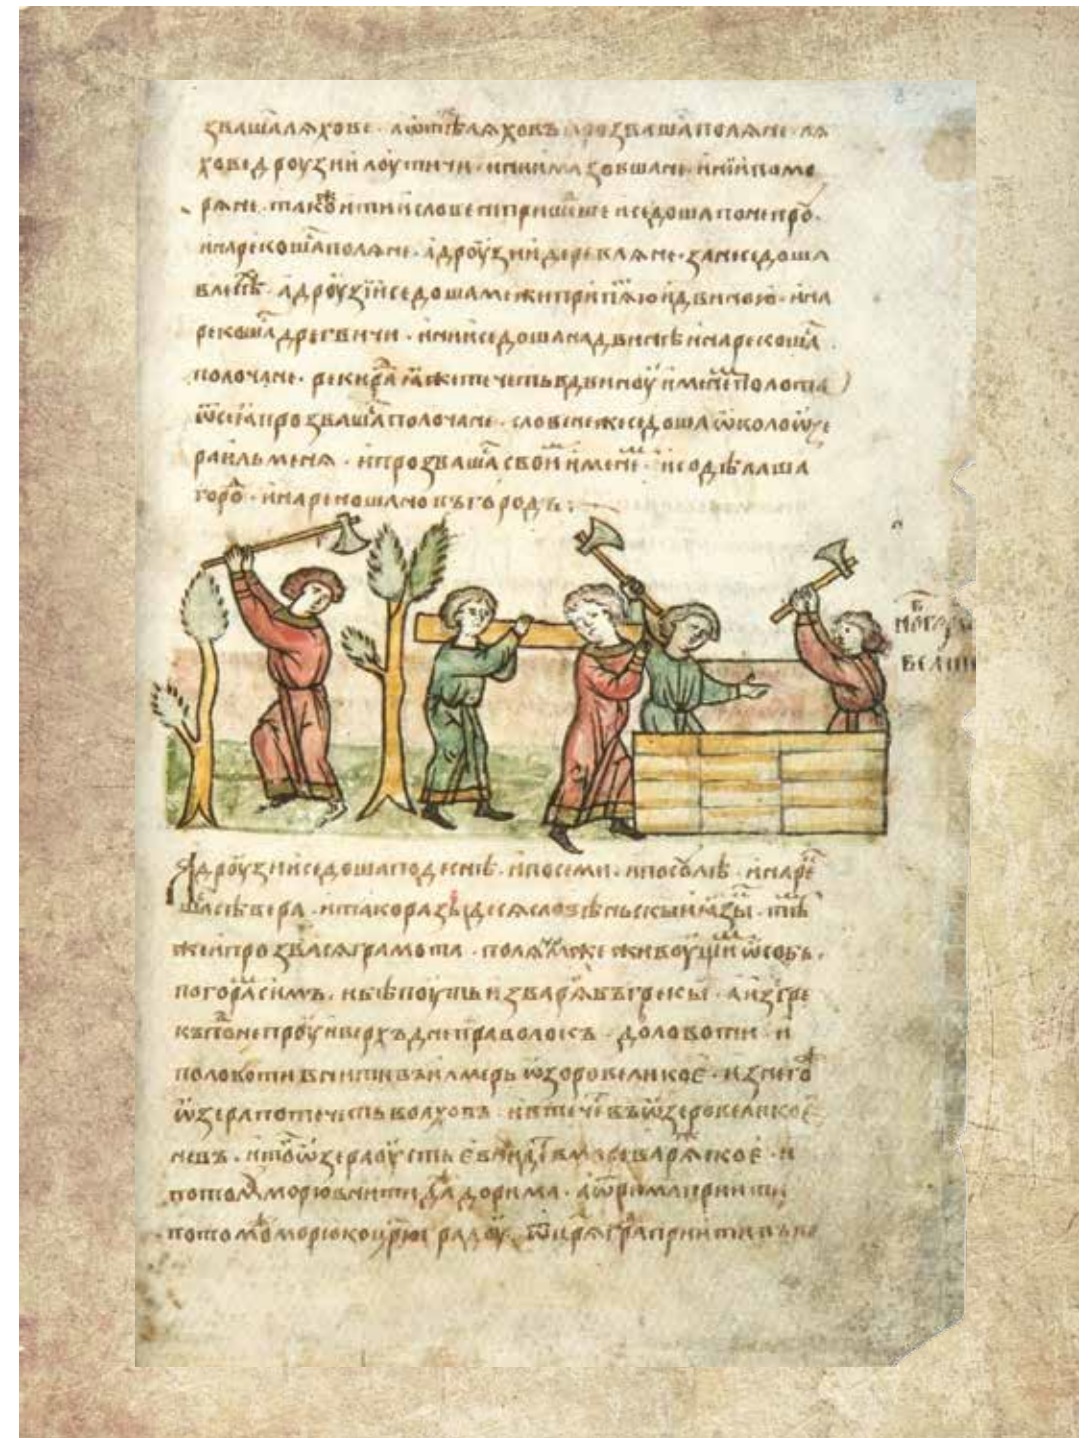 звашаляхове · аѿтѣляховъ прозвашаполѧне · лѧ
ховедроузиилоутичи · ининмазовшане · инїипомо
рѧне · такоитиисловенепришедше иседошапонепрѡ ·
инарекошаполѧне · адроузиидеревлѧне · занеседоша
влесѣ · адроузїиседошамежиприпѧтью идвиною · ина
рекошадрегвичи · инииседошанадвинѣинарекоша
полочане · рекирадиꙗжетечетьвдвиноу именемполота
ѿсеѧпрозвашасѧполочане · словенежеседошаѡколоѡзе
раильменя · ипрозвашасвоиимене · исодѣлаша
горо · инарекошановъгородъ :
Адроузииседошаподеснѣ · ипосеми · ипосоулѣ · инаре
шасѣвера · итакоразыдесѧсловѣньскыиꙗзы · тѣ
жеипрозвасяграмота · полѧжежживоущи ѡсобь ·
погорасимъ · ибѣпоутьизварѧвъгрекы · аизгре
къпонепроу иверхъднеправолокъ · доловоти · и
половотивнитивъилмерь ѡзеровеликоє · изнего
ѡзерапотечетьволховъ · ивтечевъѡзеровеликоє
невъ · итоѡзераоустьє внидетьвмореварѧскоє · и
потомоморювнитидадорима · аѿримаприити
потомоморюкоцрюградоу · ѿцрѧграприитивъпо